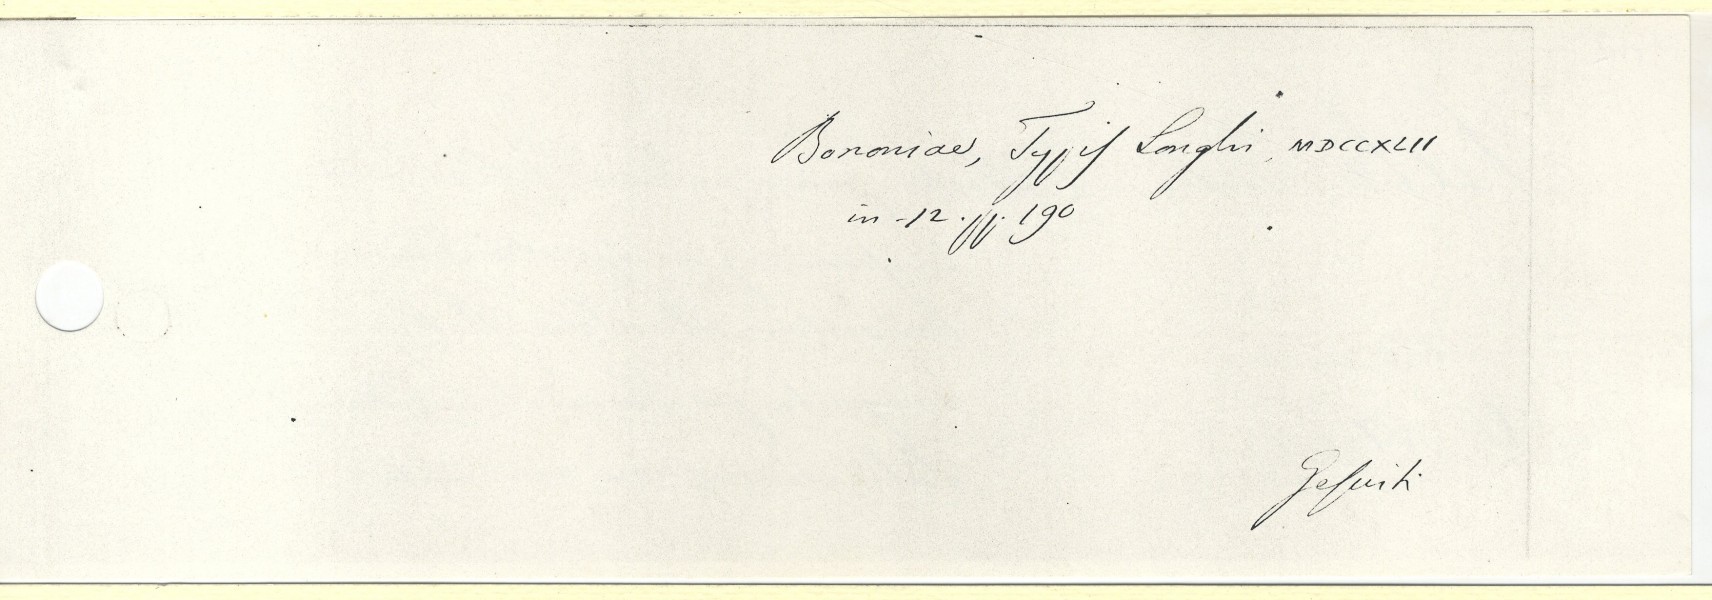 Bononiae, Typis Longhi, MDCCXLII
in-12. pp. 190
Gesuiti